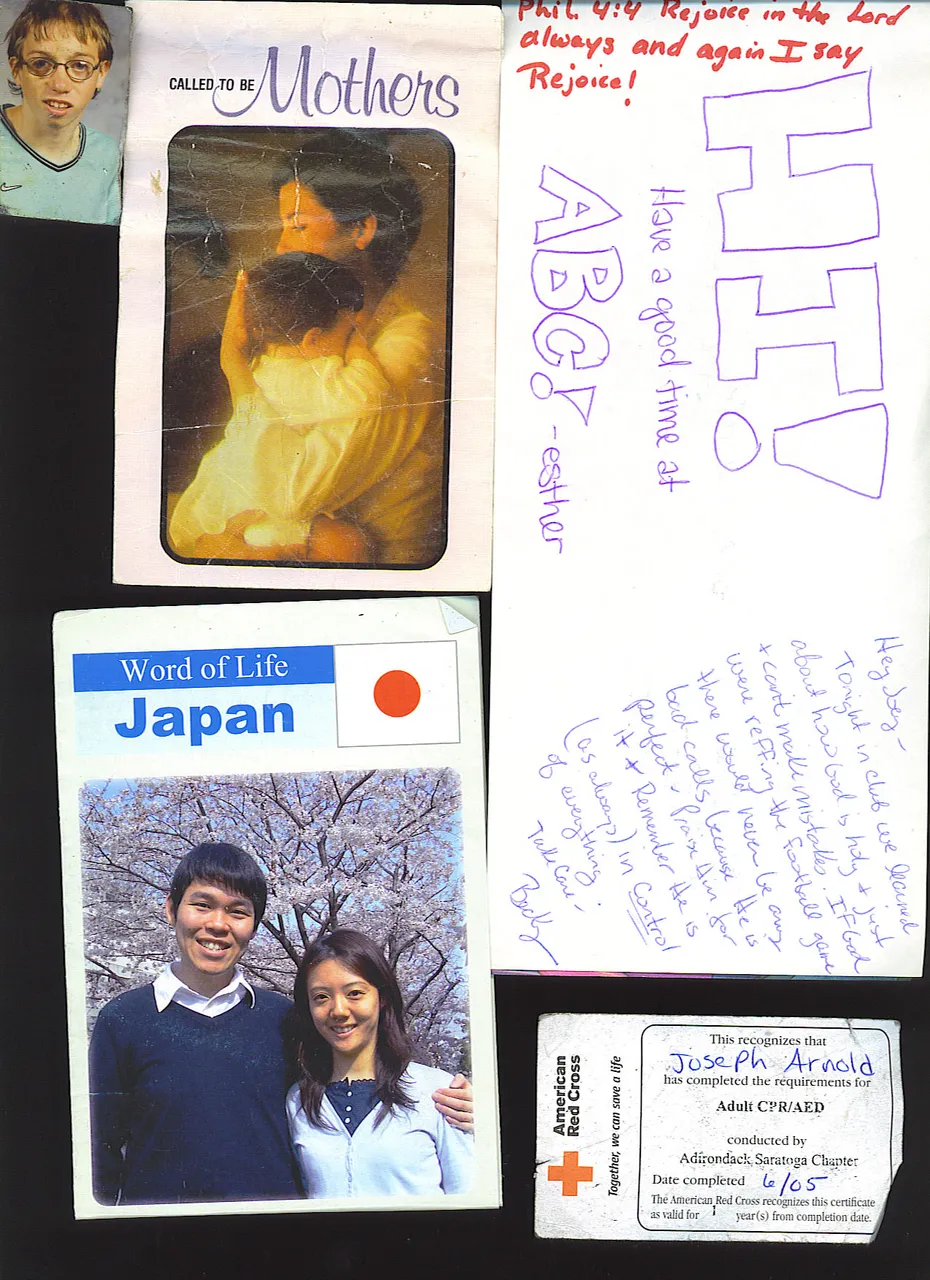 CALLED TO BE Mothers
Phil. 4:4 Rejoice in the Lord
always and again I say
Rejoice!
HI!
Have a good time at
ABC! -esther
Hey Joey -
Tonight in club we learned
about how God is holy + just
+ can't make mistakes. If God
were reffing the football game
there would never be any
bad calls because He is
perfect - Praise Him for
it + Remember He is
(as always) in Control
of everything
Take Care -
Becky
Word of Life
Japan
American
Red Cross
Together, we can save a life
This recognizes that
Joseph Arnold
has completed the requirements for
Adult CPR/AED
conducted by
Adirondack Saratoga Chapter
Date completed 6/05
The American Red Cross recognizes this certificate
as valid for 1 year(s) from completion date.